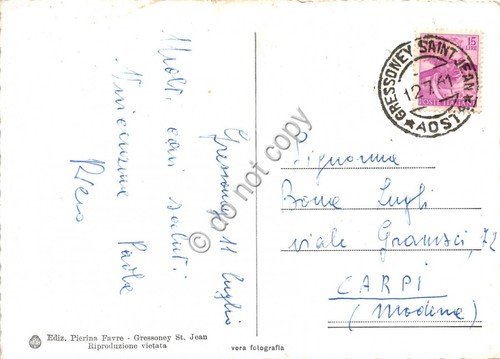 Gressoney 11 luglio
Molti cari saluti.
Vincenzina Paola
15
LIRE
POSTE ITALIANE
GRESSONEY SAINT JEAN
12.7.61
★ AOSTA ★
Signorina
Bona Lugli
viale Gramsci, 72
CARPI
(Modena)
do not copy
Ediz. Pierina Favre - Gressoney St. Jean
Riproduzione vietata
vera fotografia